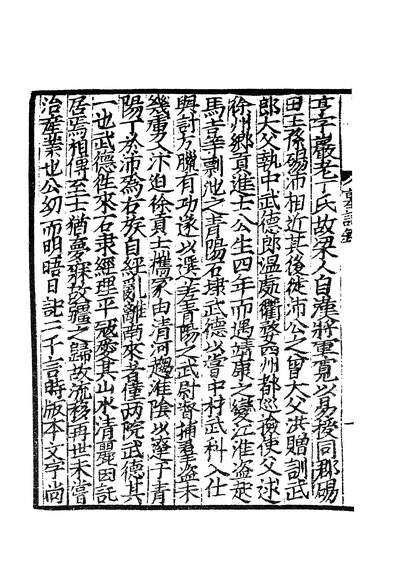 亨字巖老丁氏故梁人自漢將軍寬以易授同郡碭
田王孫碭沛相近其後徙沛公之曾大父洪贈訓武
郎大父執中武德郎溫處衢婺四州都巡檢使父逑
徐州鄉貢進士公生四年而遇靖康之變江淮盜起
馬吉等剽池之青陽石埭武德以嘗中村武科入仕
與討方臘有功遂以選差青陽之武尉督捕羣盜未
幾虜又汴迫徐貢士攜家由清河趨淮陰以達于青
陽丁於沛為右族自經亂離南來者僅兩院武德其
一也武德往來石隶經理平殘其山水清麗因託
居焉相傳至士猶夢寐故疆之歸故流移再世未嘗
治産業也公幼而明晤日記二千言時版本文字尚